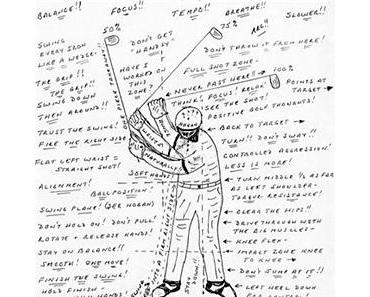 BALANCE!! FOCUS!! TEMPO!! BREATHE!! SLOWER!!
50% 75% ARG!!
SWING
EVERY IRON
LIKE A WEDGE-!!
DON'T GET
"HANDSY"
DON'T THROW IT FROM HERE!
THE GRIP!!
THE GRIP!!
HAVE I
WORKED ON
THIS ZONE?
FULL SHOT ZONE-
NEVER FAST HERE 100%
SWING DOWN
THEN AROUND!!
THINK, FOCUS! RELAX!
SEE THE SHOT!
POINTS AT
TARGET
POSITIVE GOLF THOUGHTS!
TRUST THE SWING!
BACK TO TARGET
FIRE THE RIGHT SIDE
TURN!! DON'T SWAY!!
NATURALLY!
FLAT LEFT WRIST =
STRAIGHT SHOT!
CONTROLLED AGGRESSION!
SOFT HANDS!
LESS IS MORE!
ALIGNMENT!
BALL POSITION!
TURN MIDDLE ½ AS FAR
AS LEFT SHOULDER-
TORQUE RESISTANCE!
SWING PLANE! (SEE HOGAN)
DON'T HOLD ON! DON'T PULL!
CLEAR THE HIPS!!
ROTATE + RELEASE HANDS!
DRIVE THROUGH WITH
THE BIG MUSCLES-
STAY ON BALANCE!!
KNEE FLEX-
SMOOTH! ONE MOVE!
IMPACT ZONE KNEE
TO KNEE
FINISH THE SWING!
STAY DOWN!!
DON'T JUMP AT IT!!
HOLD FINISH-
HANDS!
LEFT HEEL DOWN